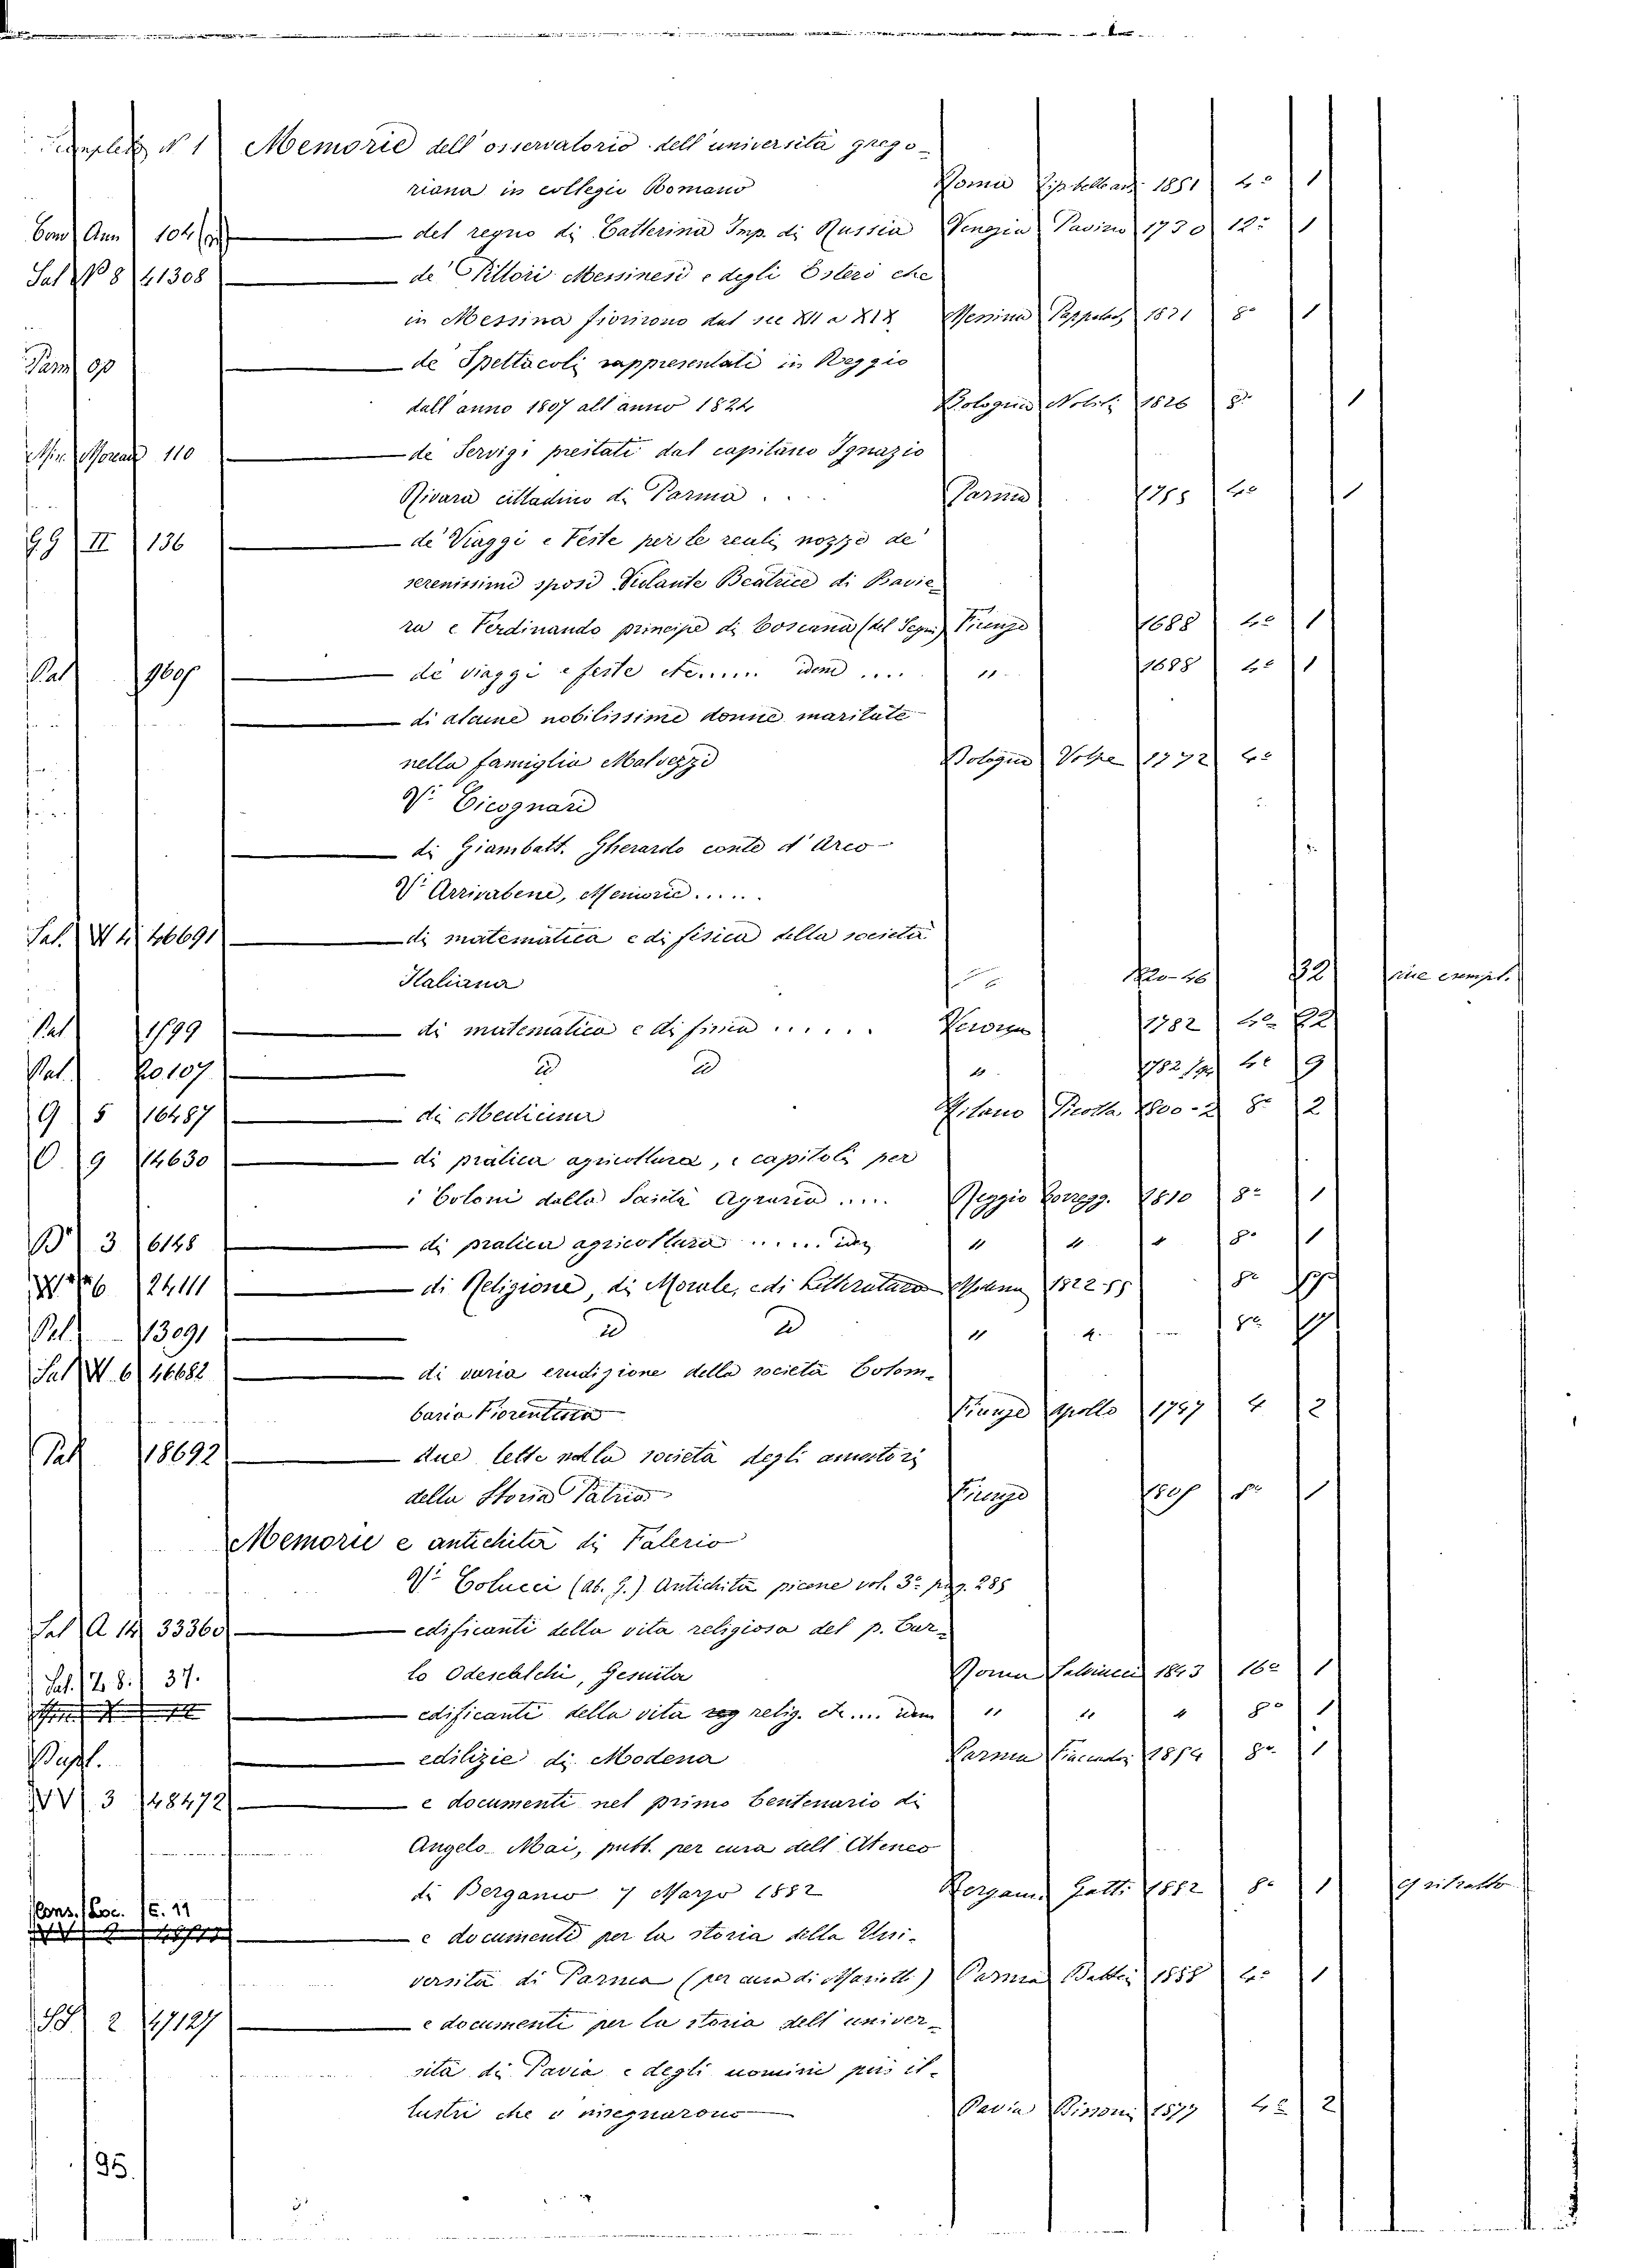 N 1 Memorie dell'osservatorio dell'università grego-
riana in collegio Romano Roma 1851 4° 1
Con Ann 104 — del regno di Catterina Imp. di Russia Venezia Pavino 1730 12° 1
Sal N 8 41308 — de' Pittori Messinesi e degli Esteri che
in Messina fiorirono dal sec XII a XIX Messina Pappalardo 1821 8° 1
Parm 90 — de' Spettacoli rappresentati in Reggio
dall'anno 1807 all'anno 1824 Bologna Nobili 1826 8° 1
Min. Moreau 110 — de Servigi prestati dal capitano Ignazio
Rivara cittadino di Parma .... Parma 4° 1
GG II 136 — de' Viaggi e Feste per le reali nozze de'
serenissimi sposi Violante Beatrice di Bavie-
ra e Ferdinando principe di Toscana (del Segni) Firenze 1688 4° 1
Pal — de' viaggi e feste etc...... idem .... " 1688 4° 1
— di alcune nobilissime donne maritate
nella famiglia Malvezzi Bologna Volpe 1772 4°
V. Cicognari
— di Giambatt. Gherardo conte d'Arco
V. Arrivabene, Memorie......
Sal. W 4 46691 — di matematica e di fisica della società
Italiana 32 due esempl.
Pal 1799 — di matematica e di fisica ...... Verona 1782 4° 22
Pal. 20107 — D D " 4° 9
9 5 16487 — di Medicina Milano Pirotta 1800-2 8° 2
O. 9 14630 — di pratica agricoltura, e capitoli per
i Coloni dalla Società Agraria .... Reggio Torregg. 1810 8° 1
B 3 6148 — di pratica agricoltura ...... idem " " " 8° 1
24111 — di Religione, di Morale, e di Letteratura Modena 1822-55 8°
Pal. 13091 — D D " " 8°
Sal W. 6 46682 — di varia erudizione della società Colom-
baria Fiorentina Firenze Apollo 1747 4 2
Pal 18692 — due lette nella società degli amatori
della Storia Patria Firenze 8° 1
Memorie e antichità di Falerio
V. Colucci (ab. G.) Antichità picene vol. 3° pag. 285
Sal A 14 33360 — edificanti della vita religiosa del p. Car-
lo Odescalchi, Gesuita Roma Salviucci 1843 16° 1
Sal. Z. 8. 37. — edificanti della vita reg relig. etc.... idem " " " 8° 1
Dupl. — edilizie di Modena Parma Fiaccadori 1854 8° 1
VV 3 48472 — e documenti nel primo Centenario di
Angelo Mai, pubb. per cura dell'Ateneo
di Bergamo 7 Marzo 1882 Bergamo Gatti 1882 8° 1 C ritratto
Cons. Loc. E. 11
— e documenti per la storia della Uni-
versità di Parma (per cura di Mariotti) Parma Battei 1888 4° 1
SS 2 47127 — e documenti per la storia dell'univer-
sità di Pavia e degli uomini più il-
lustri che v'insegnarono Pavia Bizzoni 1877 4° 2
195.